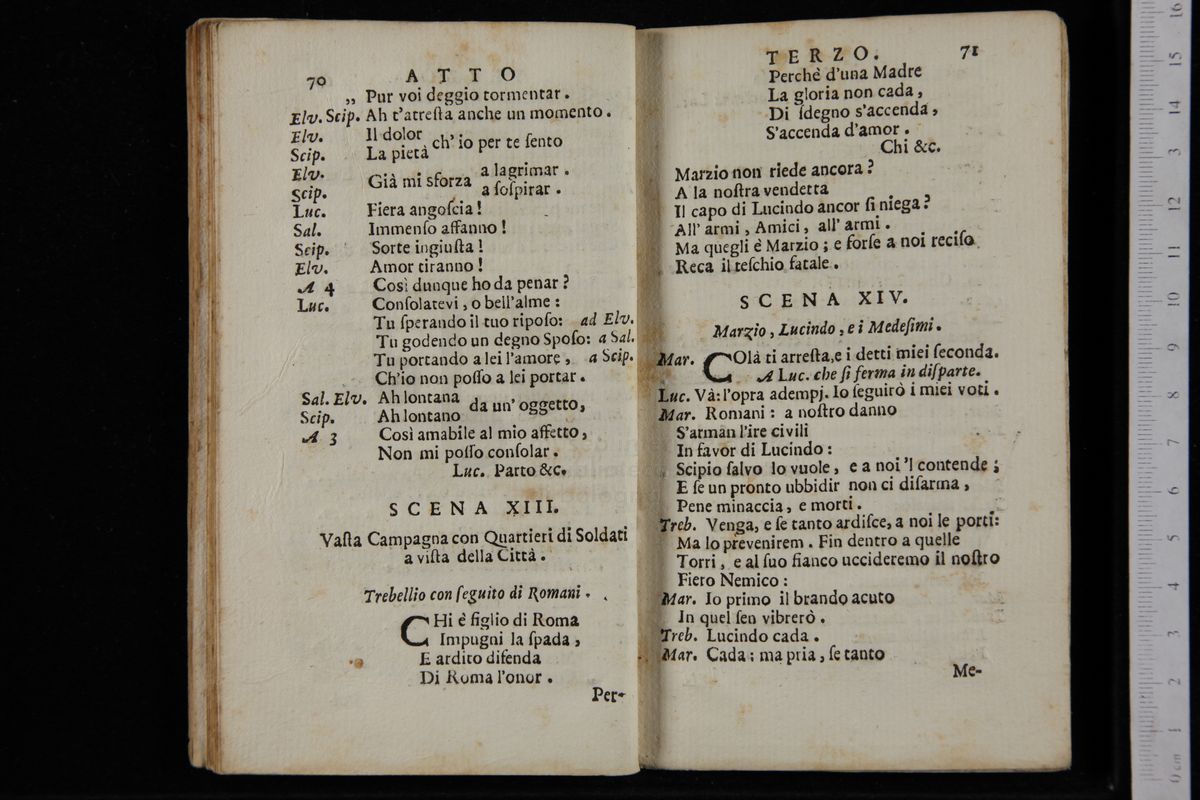 70 ATTO
„ Pur voi deggio tormentar.
Elv. Scip. Ah t'atreſta anche un momento.
Elv. Il dolor
Scip. La pietà ch'io per te ſento
Elv. a lagrimar.
Già mi sforza
Scip. a ſoſpirar.
Luc. Fiera angoſcia!
Sal. Immenſo affanno!
Scip. Sorte ingiuſta!
Elv. Amor tiranno!
A 4 Così dunque ho da penar?
Luc. Conſolatevi, o bell'alme:
Tu ſperando il tuo ripoſo: ad Elv.
Tu godendo un degno Spoſo: a Sal.
Tu portando a lei l'amore, a Scip.
Ch'io non poſſo a lei portar.
Sal. Elv. Ah lontana
da un' oggetto,
Scip. Ah lontano
A 3 Così amabile al mio affetto,
Non mi poſſo conſolar.
Luc. Parto &c.
SCENA XIII.
Vaſta Campagna con Quartieri di Soldati
a viſta della Città.
Trebellio con ſeguito di Romani.
CHi è figlio di Roma
Impugni la ſpada,
E ardito difenda
Di Roma l'onor.
Per-
TERZO. 71
Perchè d'una Madre
La gloria non cada,
Di ſdegno s'accenda,
S'accenda d'amor.
Chi &c.
Marzio non riede ancora?
A la noſtra vendetta
Il capo di Lucindo ancor ſi niega?
All' armi, Amici, all' armi.
Ma quegli è Marzio; e forſe a noi reciſo
Reca il teſchio fatale.
SCENA XIV.
Marzio, Lucindo, e i Medeſimi.
Mar. COlà ti arreſta,e i detti miei ſeconda.
A Luc. che ſi ferma in diſparte.
Luc. Và: l'opra adempj. Io ſeguirò i miei voti.
Mar. Romani: a noſtro danno
S'arman l'ire civili
In favor di Lucindo:
Scipio ſalvo lo vuole, e a noi 'l contende;
E ſe un pronto ubbidir non ci diſarma,
Pene minaccia, e morti.
Treb. Venga, e ſe tanto ardiſce, a noi le porti:
Ma lo prevenirem. Fin dentro a quelle
Torri, e al ſuo fianco uccideremo il noſtro
Fiero Nemico:
Mar. Io primo il brando acuto
In quel ſen vibrerò.
Treb. Lucindo cada.
Mar. Cada: ma pria, ſe tanto
Me-
0 cm 1 2 3 4 5 6 7 8 9 10 11 12 13 14 15 16